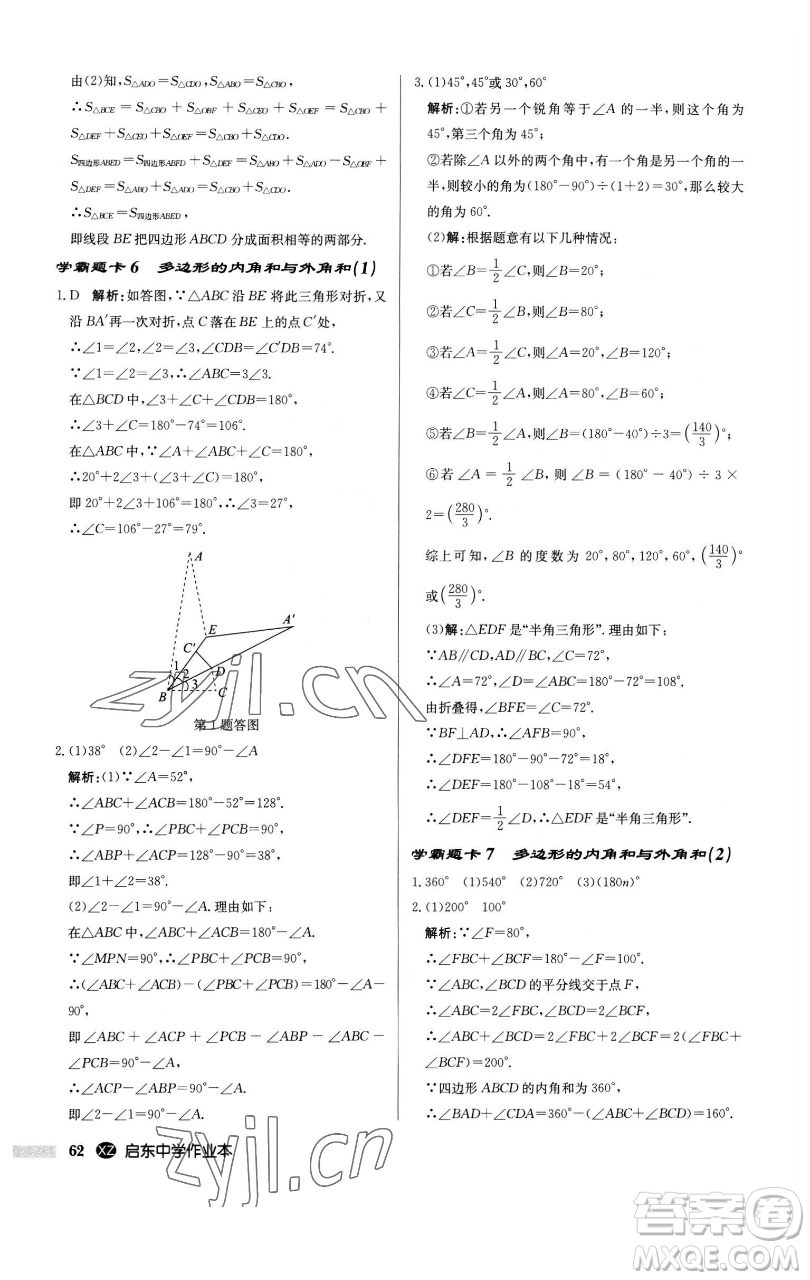 由(2)知，S△ADO=S△CDO，S△ABO=S△CBO，
∴S△BCE=S△CBO+S△OBF+S△CEO+S△OEF=S△CBO+
S△DEF+S△CEO+S△OEF=S△CBO+S△CDO.
S四边形ABED=S四边形ABFD+S△DEF=S△ABO+S△ADO-S△OBF+
S△DEF=S△ABO+S△ADO=S△CBO+S△CDO，
∴S△BCE=S四边形ABED，
即线段BE把四边形ABCD分成面积相等的两部分.
学霸题卡6 多边形的内角和与外角和(1)
1.D 解析:如答图，∵△ABC沿BE将此三角形对折，又
沿BA′再一次对折，点C落在BE上的点C′处，
∴∠1=∠2，∠2=∠3，∠CDB=∠C′DB=74°.
∵∠1=∠2=∠3，∴∠ABC=3∠3.
在△BCD中，∠3+∠C+∠CDB=180°，
∴∠3+∠C=180°-74°=106°.
在△ABC中，∵∠A+∠ABC+∠C=180°，
∴20°+2∠3+(∠3+∠C)=180°，
即20°+2∠3+106°=180°，∴∠3=27°，
∴∠C=106°-27°=79°.
A
E
A′
C′
1
2
D
3
B
C
第1题答图
2.(1)38° (2)∠2-∠1=90°-∠A
解析:(1)∵∠A=52°，
∴∠ABC+∠ACB=180°-52°=128°.
∵∠P=90°，∴∠PBC+∠PCB=90°，
∴∠ABP+∠ACP=128°-90°=38°，
即∠1+∠2=38°.
(2)∠2-∠1=90°-∠A.理由如下:
在△ABC中，∠ABC+∠ACB=180°-∠A.
∵∠MPN=90°，∴∠PBC+∠PCB=90°，
∴∠(ABC+∠ACB)-(∠PBC+∠PCB)=180°-∠A-
90°，
即∠ABC+∠ACP+∠PCB-∠ABP-∠ABC-
∠PCB=90°-∠A，
∴∠ACP-∠ABP=90°-∠A，
即∠2-∠1=90°-∠A.
62 XZ 启东中学作业本
3.(1)45°，45°或30°，60°
解析:①若另一个锐角等于∠A的一半，则这个角为
45°，第三个角为45°;
②若除∠A以外的两个角中，有一个角是另一个角的一
半，则较小的角为(180°-90°)÷(1+2)=30°，那么较大
的角为60°.
(2)解:根据题意有以下几种情况:
①若∠B=1/2∠C，则∠B=20°;
②若∠C=1/2∠B，则∠B=80°;
③若∠A=1/2∠C，则∠B=120°;
④若∠C=1/2∠A，则∠B=60°;
⑤若∠B=1/2∠A，则∠B=(180°-40°)÷3=(140/3)°;
⑥若∠A=1/2∠B，则∠B=(180°-40°)÷3×
2=(280/3)°.
综上可知，∠B的度数为20°，80°，120°，60°，(140/3)°
或(280/3)°.
(3)解:△EDF是“半角三角形”.理由如下:
∵AB∥CD，AD∥BC，∠C=72°，
∴∠A=72°，∠D=∠ABC=180°-72°=108°.
由折叠得，∠BFE=∠C=72°.
∵BF⊥AD，∴∠AFB=90°，
∴∠DFE=180°-90°-72°=18°，
∴∠DEF=180°-108°-18°=54°，
∴∠DEF=1/2∠D，∴△EDF是“半角三角形”.
学霸题卡7 多边形的内角和与外角和(2)
1.360° (1)540° (2)720° (3)(180n)°
2.(1)200° 100°
解析:∵∠F=80°，
∴∠FBC+∠BCF=180°-∠F=100°.
∵∠ABC，∠BCD的平分线交于点F，
∴∠ABC=2∠FBC，∠BCD=2∠BCF，
∴∠ABC+∠BCD=2∠FBC+2∠BCF=2(∠FBC+
∠BCF)=200°.
∵四边形ABCD的内角和为360°，
∴∠BAD+∠CDA=360°-(∠ABC+∠BCD)=160°.
zyjl.cn
zyjl.cn
答案圈
MXQE.COM